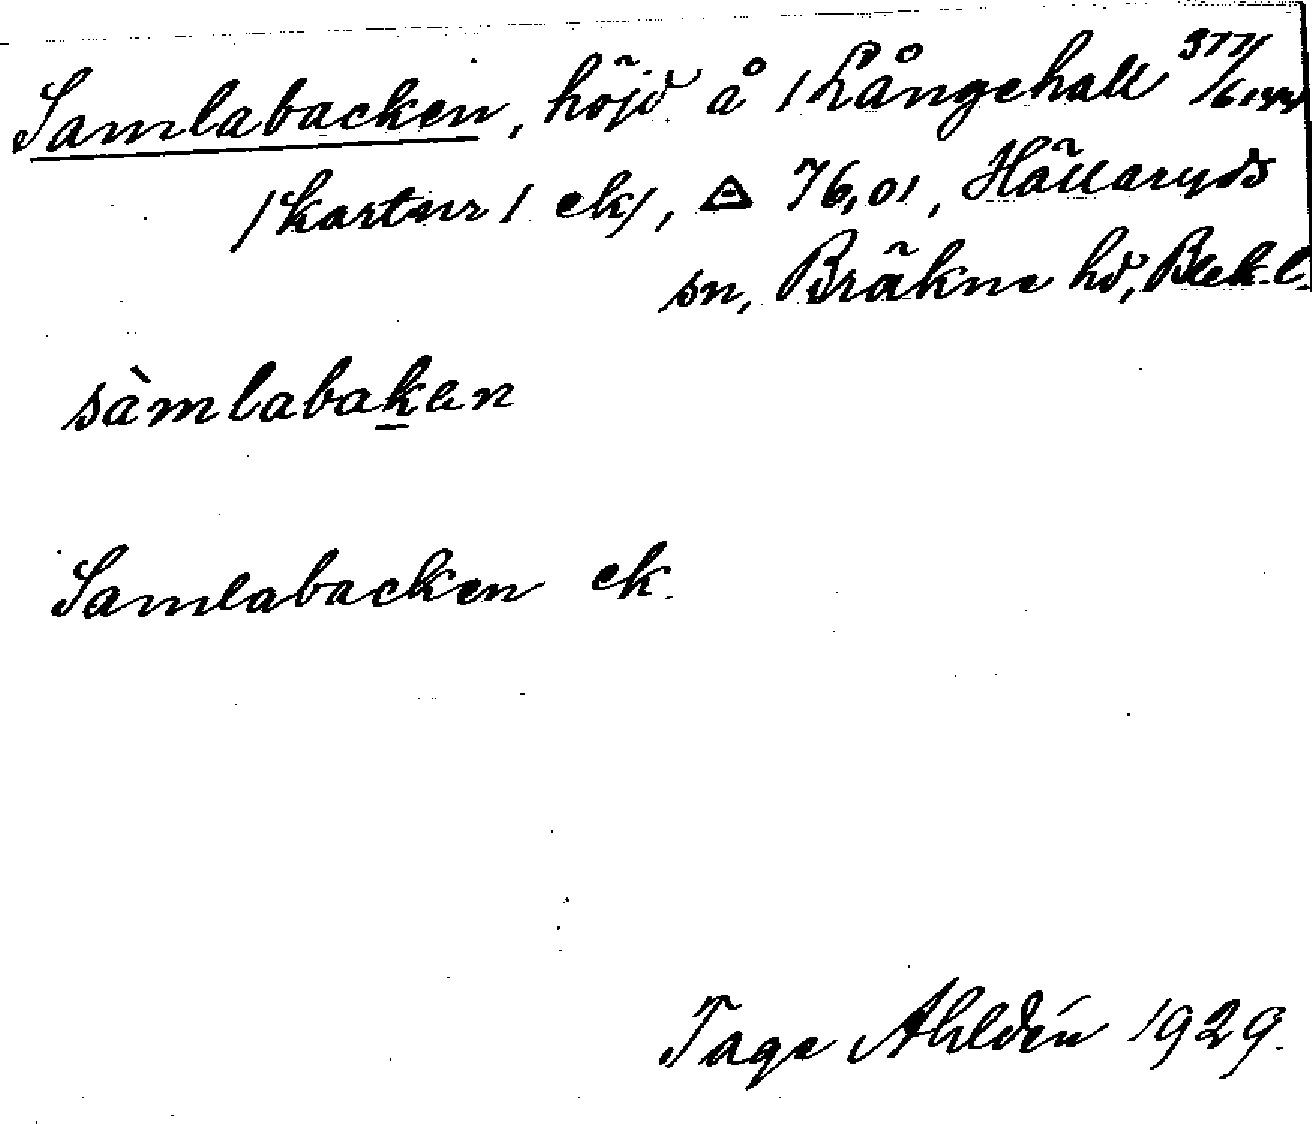 Samlabacken, höjd å /Långehall
/kartur/ ek/, 76,01, Hällaryds
sn, Bräkne hd, Blek. l.
sàmlabaken
Samlabacken ek.
Tage Ahldén 1929.